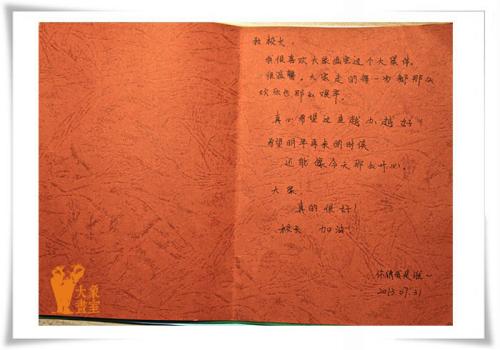 校长,
我很喜欢大象画室这个大家伴。
很温馨。大家走的每一步都那么
欢乐也那么艰辛。
真心希望这里越办越好
希望明年再来的时候
还能像今天那么开心。
大象
真的很好!
校长 加油!
2013.07.31
大象
画室